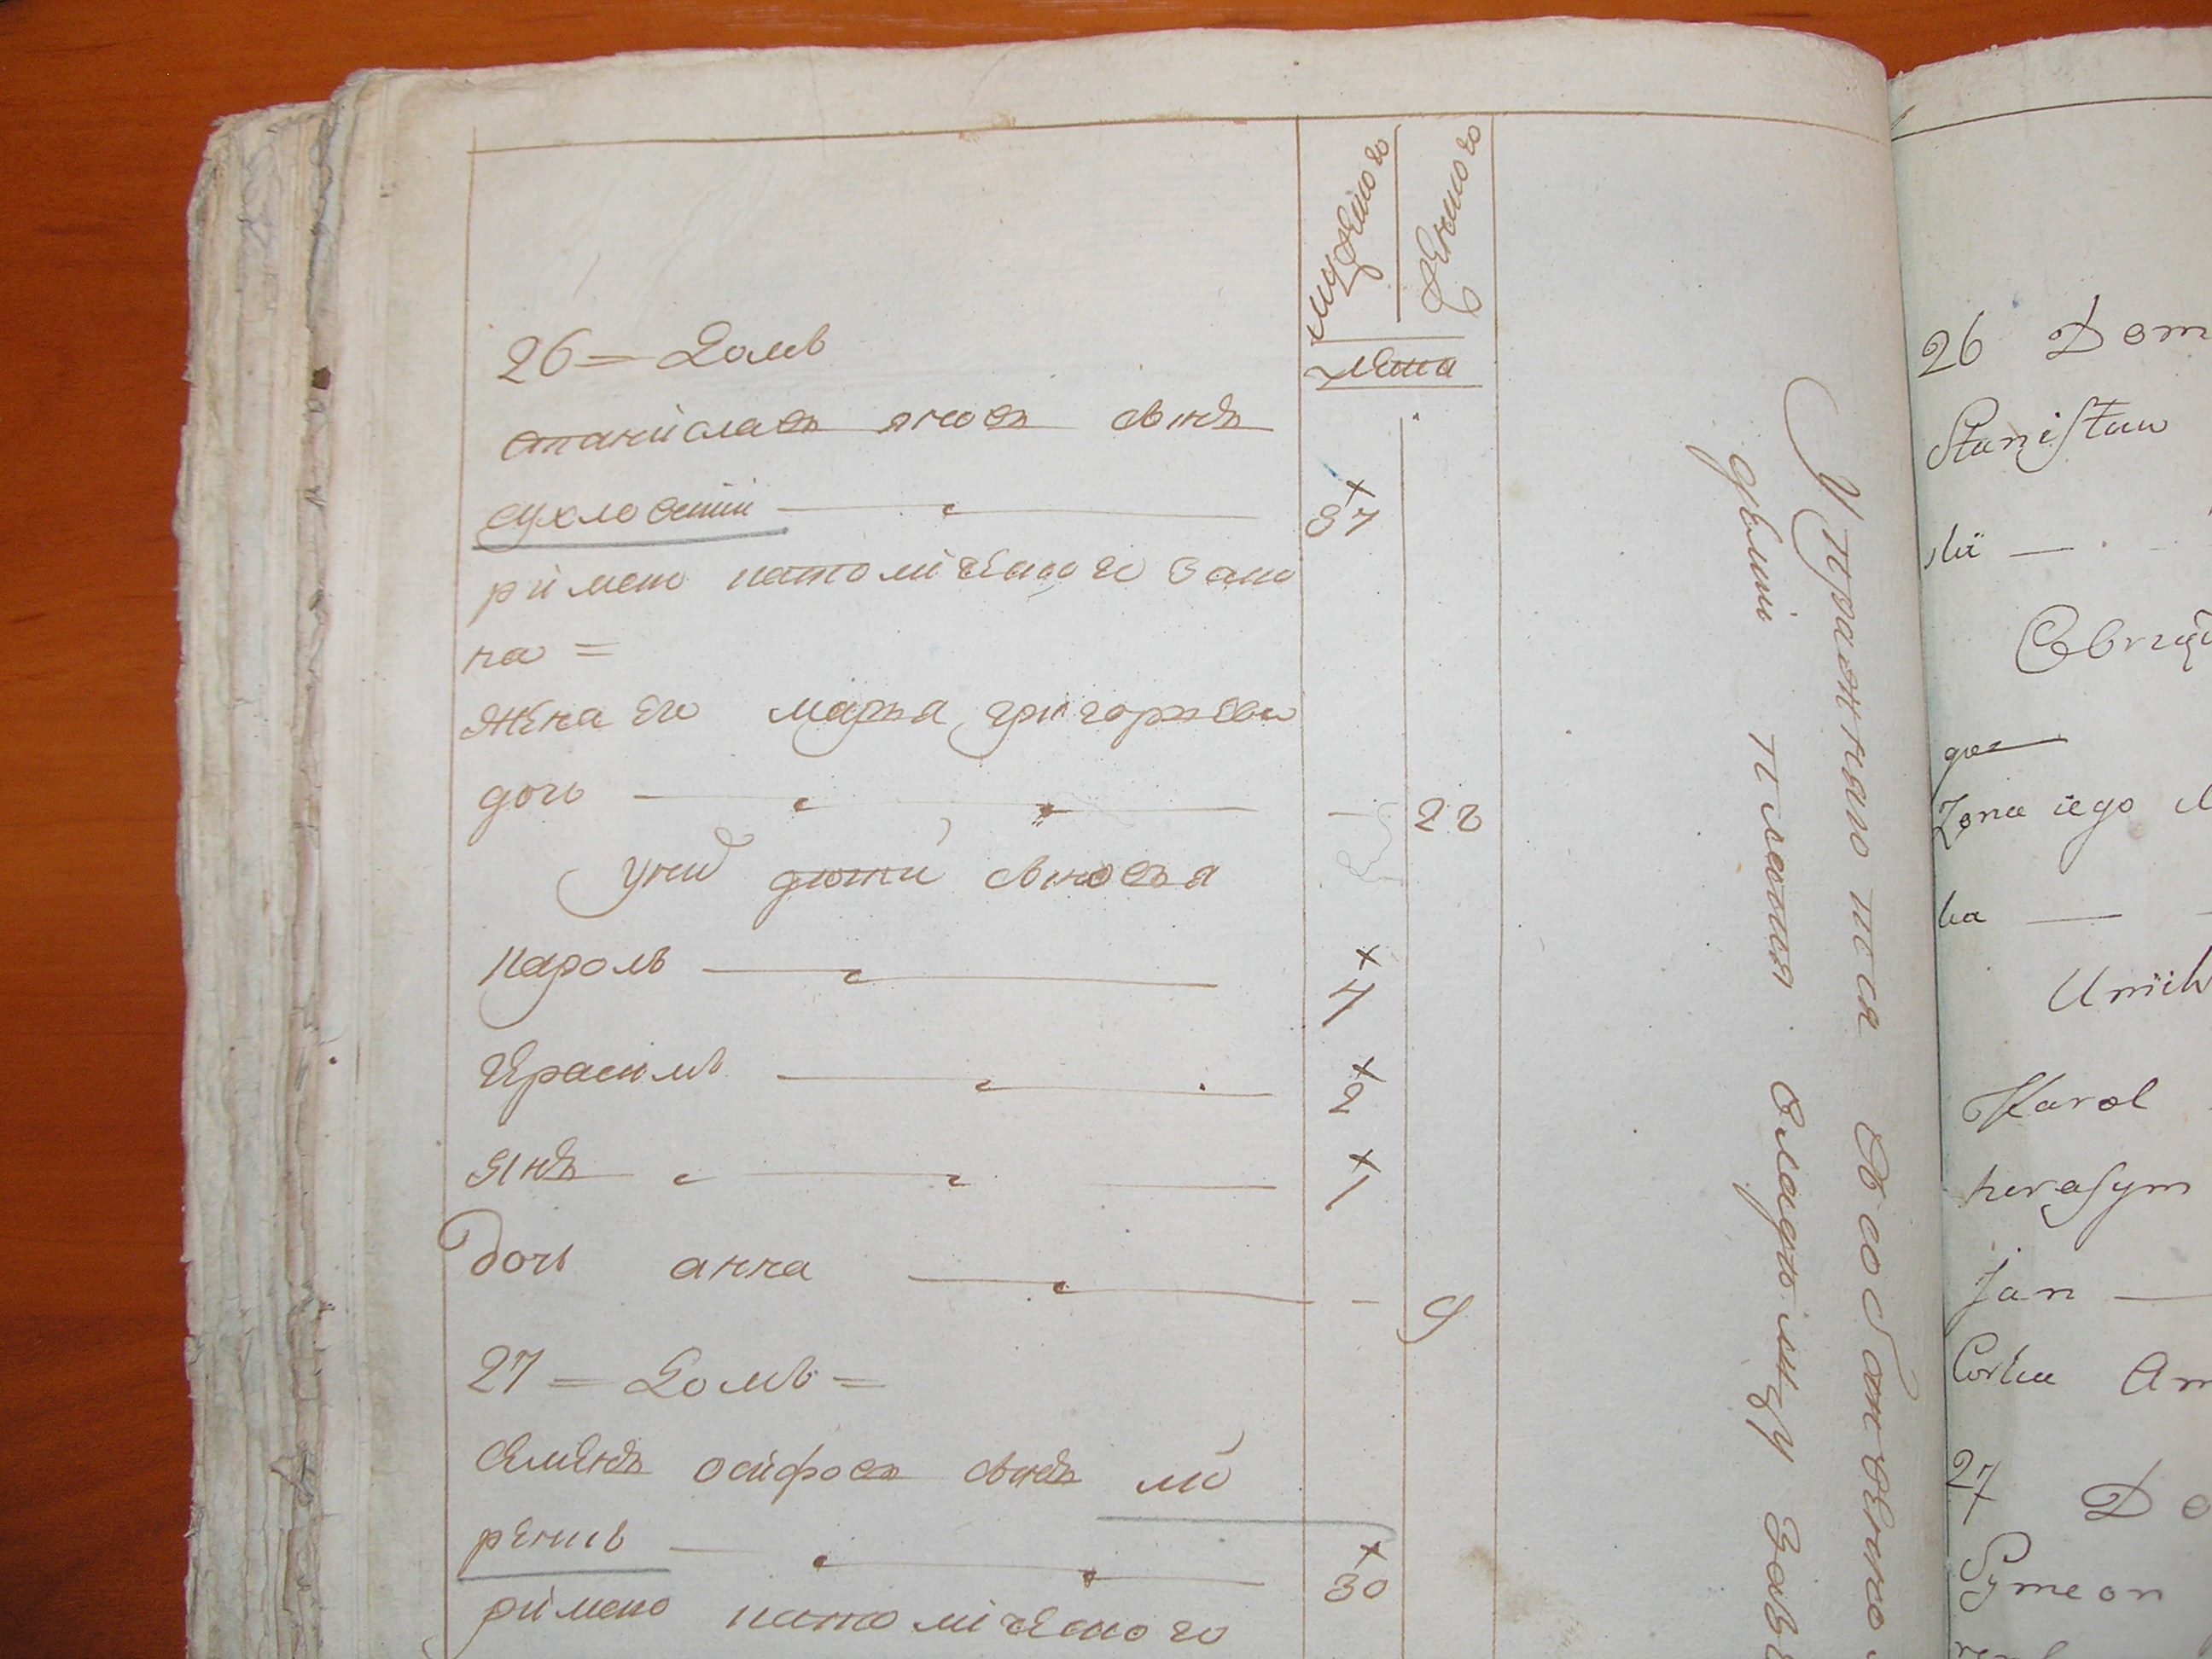 мужеского
женского
лѣта
26 = Домъ
станиславъ яновъ сынъ
сухловскии
37
римско католическаго зако
на =
жена его марья григорьева
дочь
28
у них дѣти сыновья
кароль
4
Герасимъ
2
янъ
1
дочь анна
9
27 = Домъ =
семенъ осифовъ сынъ ми
ренич
30
римско католического
Упражняются в собственно
племя
26 Dom
Stanisław
ski
Zona iego
ka
Karol
herasym
jan
Corka
27
Symeon